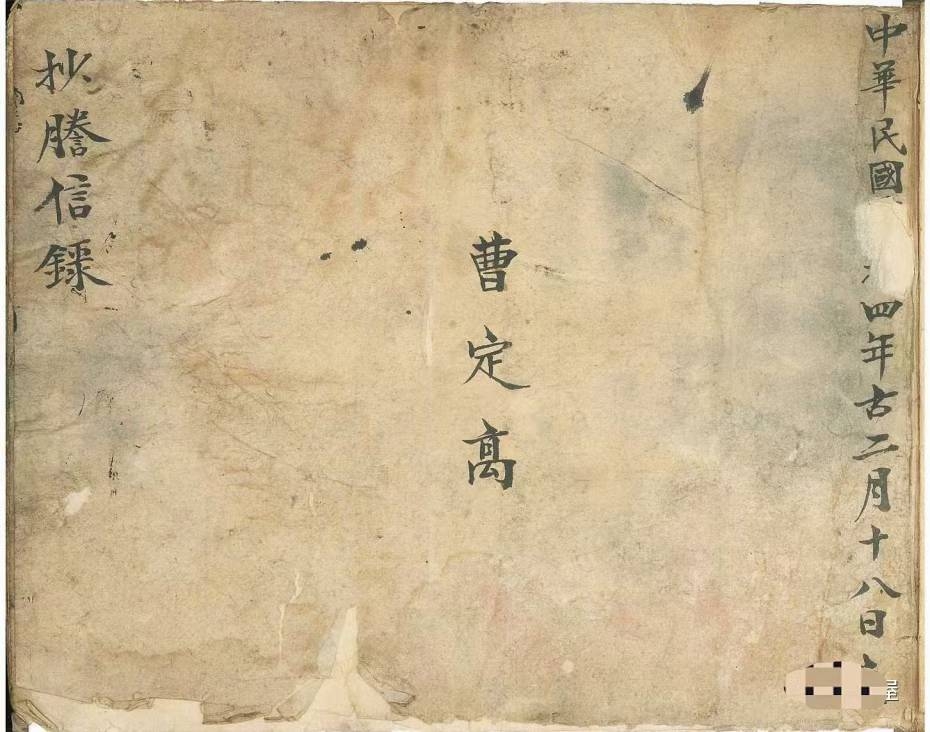 中華民國
四年古二月十八日
曹定高
抄謄信錄